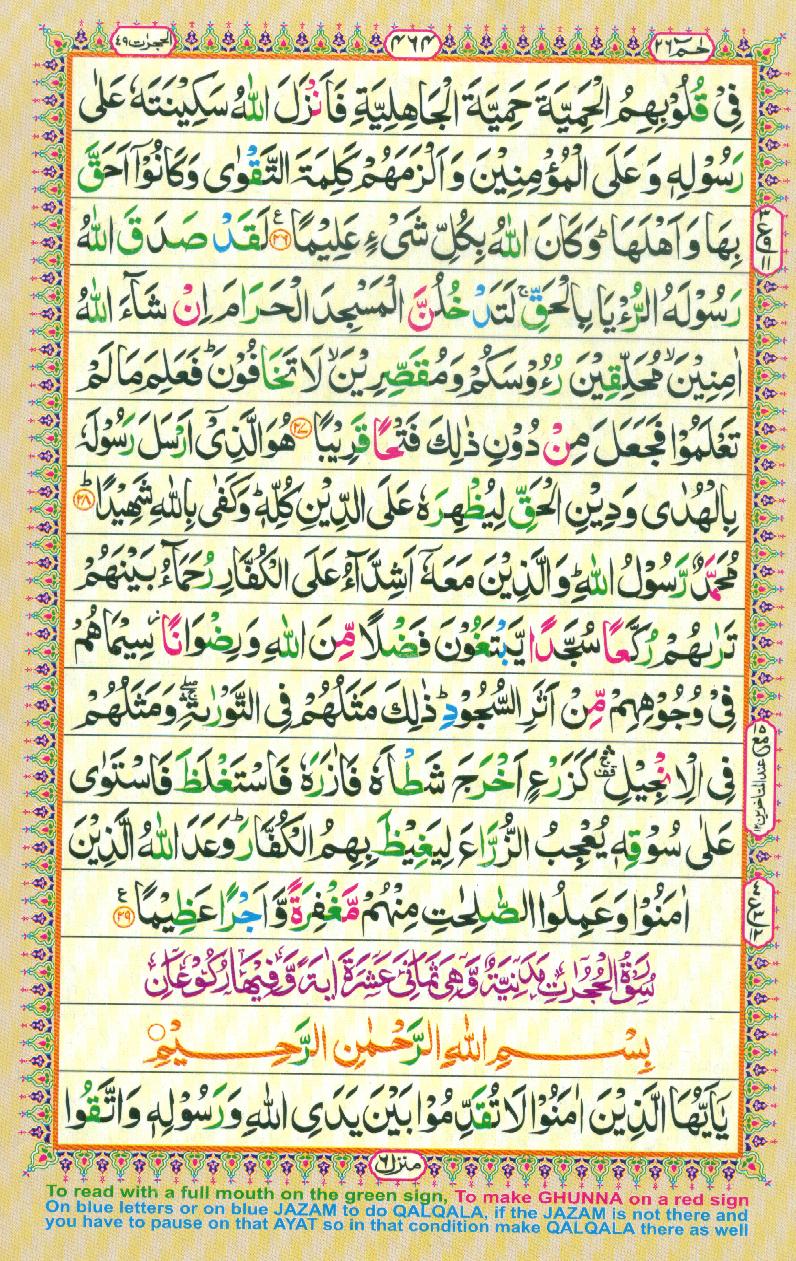 حٰمٓ ٢٦
٤٦٤
الحجرٰت ٤٩
فِیْ قُلُوْبِهِمُ الْحَمِیَّةَ حَمِیَّةَ الْجَاهِلِیَّةِ فَاَنْزَلَ اللّٰهُ سَكِیْنَتَهٗ عَلٰی
رَسُوْلِهٖ وَ عَلَی الْمُؤْمِنِیْنَ وَ اَلْزَمَهُمْ كَلِمَةَ التَّقْوٰی وَ كَانُوْۤا اَحَقَّ
بِهَا وَ اَهْلَهَا ؕ وَ كَانَ اللّٰهُ بِكُلِّ شَیْءٍ عَلِیْمًا ﴿٢٦﴾ لَقَدْ صَدَقَ اللّٰهُ
رَسُوْلَهُ الرُّءْیَا بِالْحَقِّ ۚ لَتَدْخُلُنَّ الْمَسْجِدَ الْحَرَامَ اِنْ شَآءَ اللّٰهُ
اٰمِنِیْنَ ۙ مُحَلِّقِیْنَ رُءُوْسَكُمْ وَ مُقَصِّرِیْنَ ۙ لَا تَخَافُوْنَ ؕ فَعَلِمَ مَا لَمْ
تَعْلَمُوْا فَجَعَلَ مِنْ دُوْنِ ذٰلِكَ فَتْحًا قَرِیْبًا ﴿٢٧﴾ هُوَ الَّذِیْۤ اَرْسَلَ رَسُوْلَهٗ
بِالْهُدٰی وَ دِیْنِ الْحَقِّ لِیُظْهِرَهٗ عَلَی الدِّیْنِ كُلِّهٖ ؕ وَ كَفٰی بِاللّٰهِ شَهِیْدًا ؕ ﴿٢٨﴾
مُحَمَّدٌ رَّسُوْلُ اللّٰهِ ؕ وَ الَّذِیْنَ مَعَهٗۤ اَشِدَّآءُ عَلَی الْكُفَّارِ رُحَمَآءُ بَیْنَهُمْ
تَرٰىهُمْ رُكَّعًا سُجَّدًا یَّبْتَغُوْنَ فَضْلًا مِّنَ اللّٰهِ وَ رِضْوَانًا ؗ سِیْمَاهُمْ
فِیْ وُجُوْهِهِمْ مِّنْ اَثَرِ السُّجُوْدِ ؕ ذٰلِكَ مَثَلُهُمْ فِی التَّوْرٰىةِ ۛۖۚ وَ مَثَلُهُمْ
فِی الْاِنْجِیْلِ ۛ۫ۚ كَزَرْعٍ اَخْرَجَ شَطْـَٔهٗ فَاٰزَرَهٗ فَاسْتَغْلَظَ فَاسْتَوٰی
عَلٰی سُوْقِهٖ یُعْجِبُ الزُّرَّاعَ لِیَغِیْظَ بِهِمُ الْكُفَّارَ ؕ وَعَدَ اللّٰهُ الَّذِیْنَ
اٰمَنُوْا وَ عَمِلُوا الصّٰلِحٰتِ مِنْهُمْ مَّغْفِرَةً وَّ اَجْرًا عَظِیْمًا ﴿٢٩﴾
سُوْرَةُ الْحُجُرٰتِ مَدَنِیَّةٌ وَّهِیَ ثَمَانِیَ عَشْرَةَ اٰیَةً وَّفِیْهَا رُكُوْعَانِ
بِسْمِ اللّٰهِ الرَّحْمٰنِ الرَّحِیْمِ
یٰۤاَیُّهَا الَّذِیْنَ اٰمَنُوْا لَا تُقَدِّمُوْا بَیْنَ یَدَیِ اللّٰهِ وَ رَسُوْلِهٖ وَ اتَّقُوا
منزل ٦
To read with a full mouth on the green sign, To make GHUNNA on a red sign
On blue letters or on blue JAZAM to do QALQALA, if the JAZAM is not there and
you have to pause on that AYAT so in that condition make QALQALA there as well